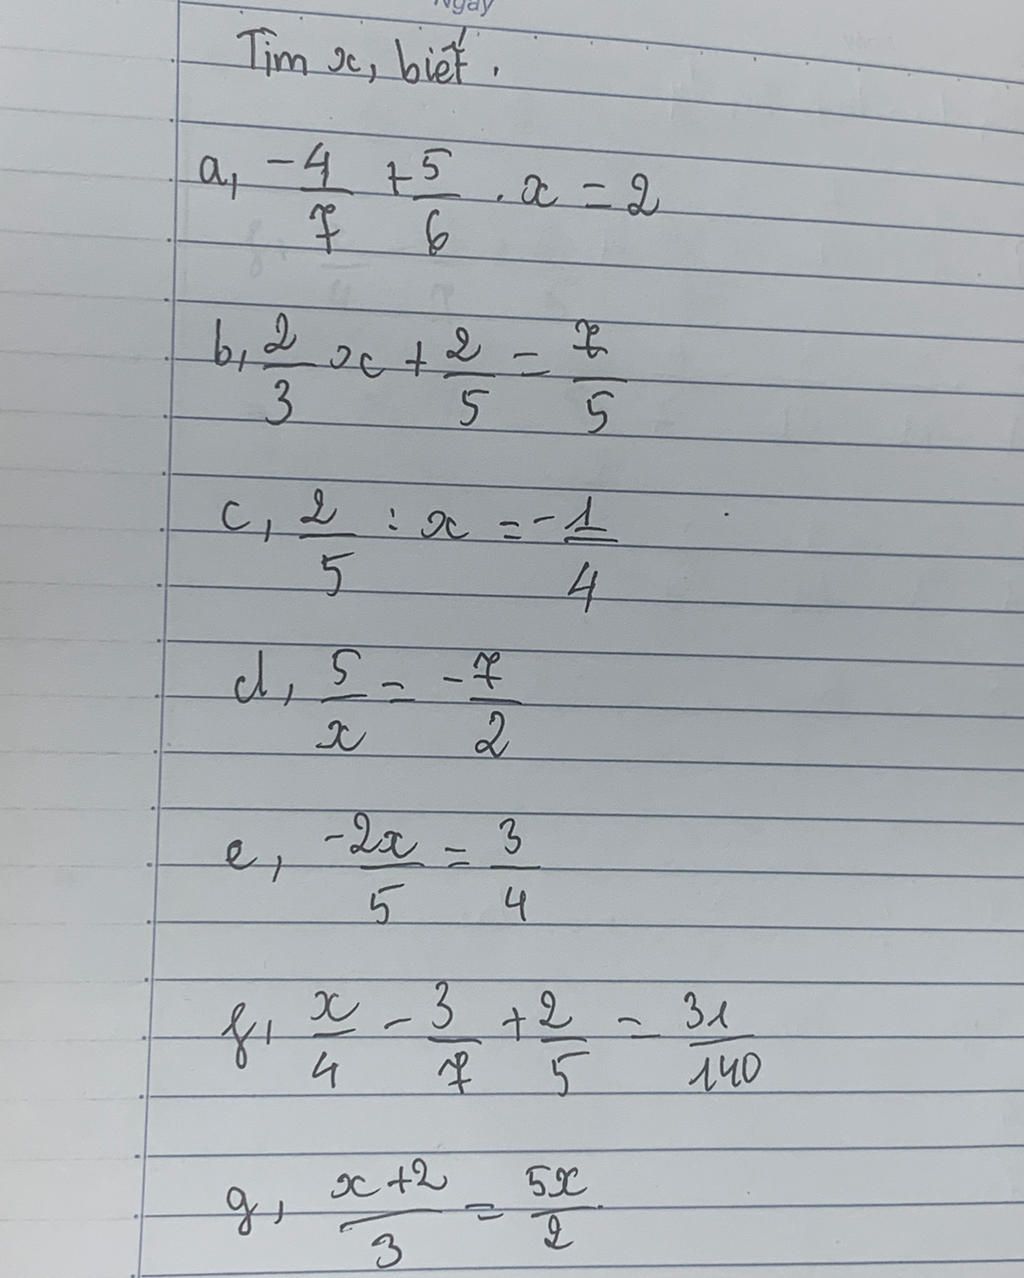 Ngày
Tìm x, biết.
a, -4/7 + 5/6 . x = 2
b, 2/3 x + 2/5 = 7/5
c, 2/5 : x = -1/4
d, 5/x = -7/2
e, -2x/5 = 3/4
f, x/4 - 3/7 + 2/5 = 31/140
g, x+2/3 = 5x/2